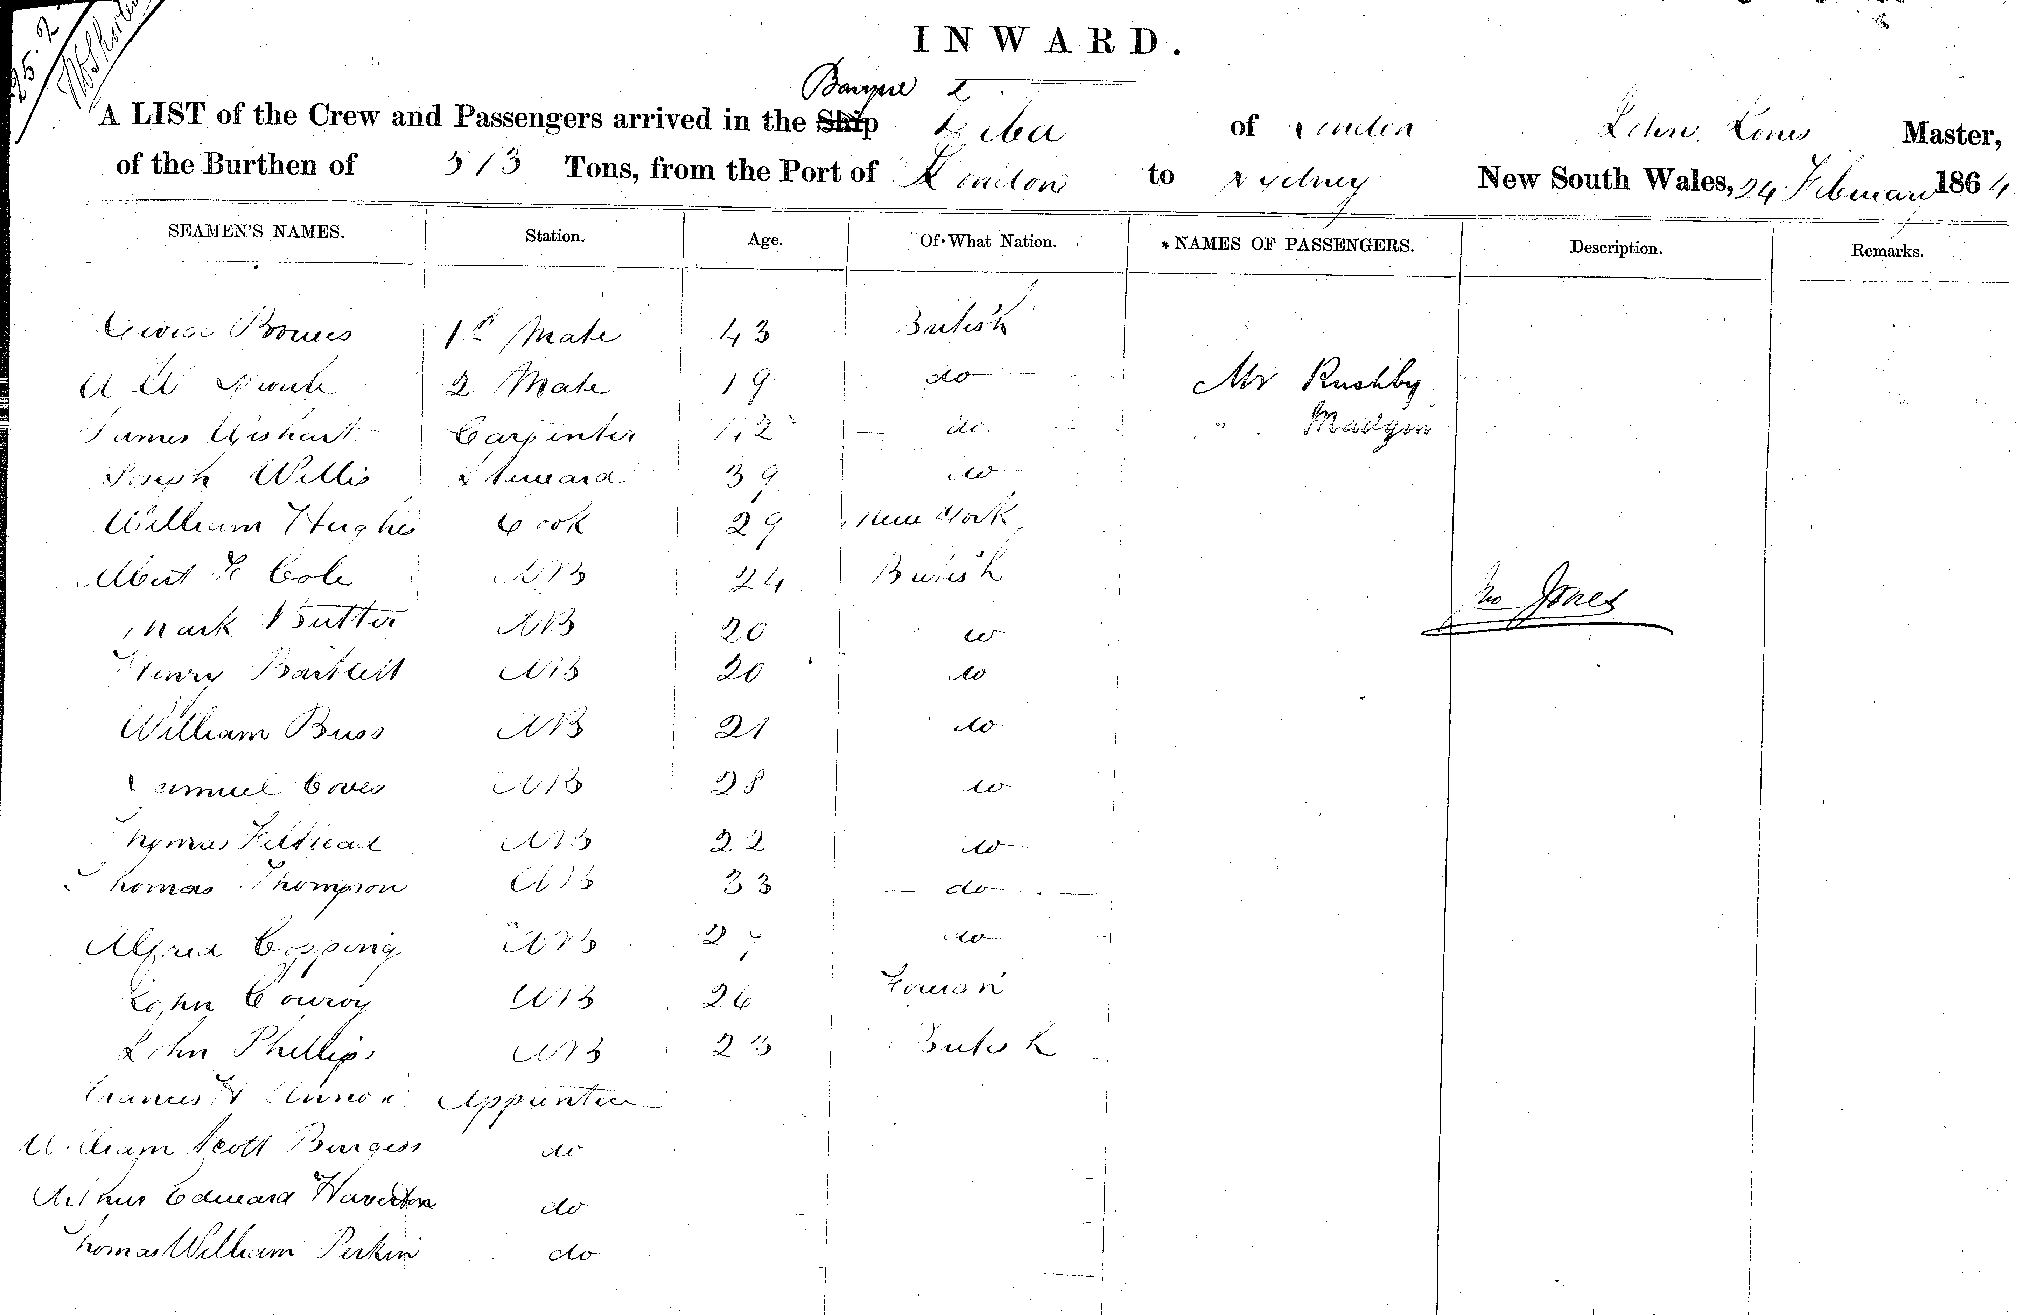 25.2
INWARD.
Barque
A LIST of the Crew and Passengers arrived in the Ship Ziba of London John Jones Master,
of the Burthen of 513 Tons, from the Port of London to Sydney New South Wales, 24 February 1864
SEAMEN'S NAMES. Station. Age. Of What Nation. * NAMES OF PASSENGERS. Description. Remarks.
1st Mate 43 British
2 Mate 19 do Mr Rushby
James Wishart Carpenter 42 do " Madgin
Joseph Willis Steward 39 do
William Hughes Cook 29 New York
Albert F Cole AB 24 British
Mark Butter AB 20 do
Jno Jones
Henry Bartlett AB 20 do
William Buss AB 21 do
Samuel Coves AB 28 do
Thomas AB 22 do
Thomas Thompson AB 33 do
Alfred Copping AB 27 do
John Conroy AB 26
John Phillips AB 23 British
Francis H Apprentice
William Scott Burgess do
Arthur Edward do
Thomas William Perkin do